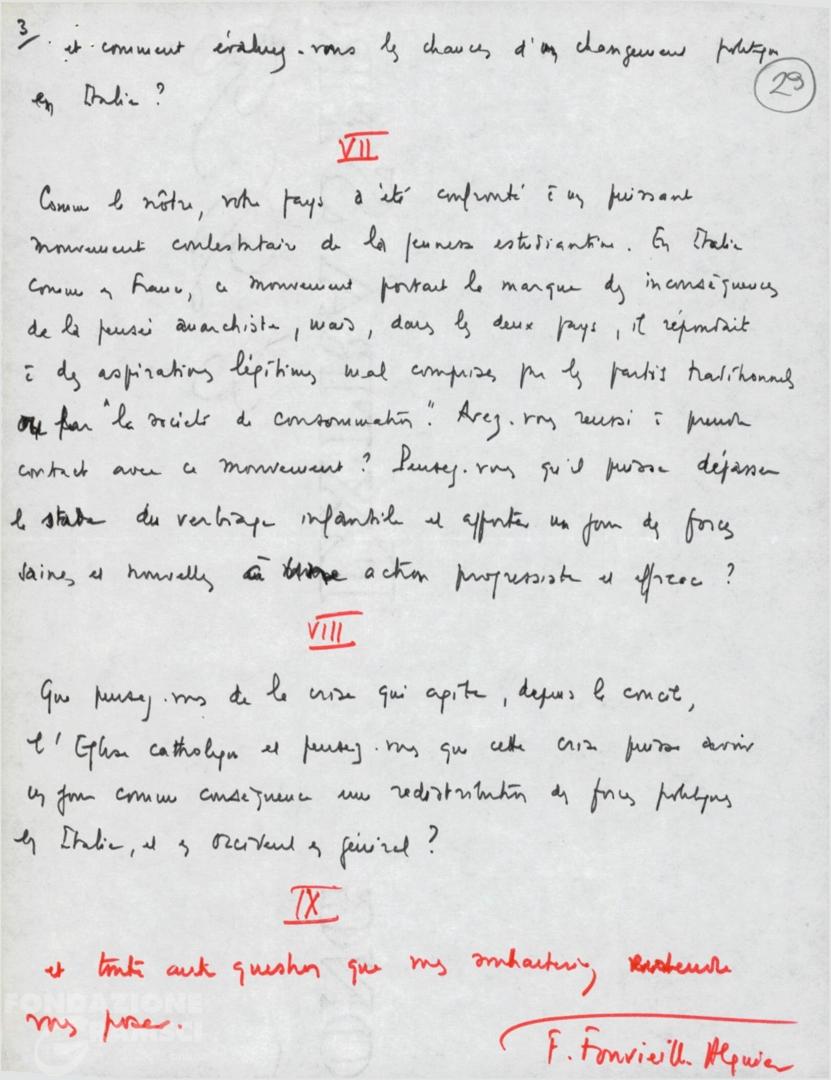 3/ et comment évaluez-vous les chances d'un changement politique
29
en Italie ?
VII
Comme le nôtre, votre pays a été confronté à un puissant
mouvement contestataire de la jeunesse estudiantine. En Italie
comme en France, ce mouvement portait la marque des inconséquences
de la pensée anarchiste, mais, dans les deux pays, il répondait
à des aspirations légitimes mal comprises par les partis traditionnels
ou par "la société de consommation". Avez-vous réussi à prendre
contact avec ce mouvement ? Pensez-vous qu'il puisse dépasser
le stade du verbiage infantile et apporter un jour des forces
saines et nouvelles à une action progressiste et efficace ?
VIII
Que pensez-vous de la crise qui agite, depuis le concile,
l'Eglise catholique et pensez-vous que cette crise puisse avoir
un jour comme conséquence une redistribution des forces politiques
en Italie, et en Occident en général ?
IX
et toute autre question que vous souhaiteriez entendre
vous poser.
F. Fonvieille Alquier
FONDAZIONE
GRAMSCI